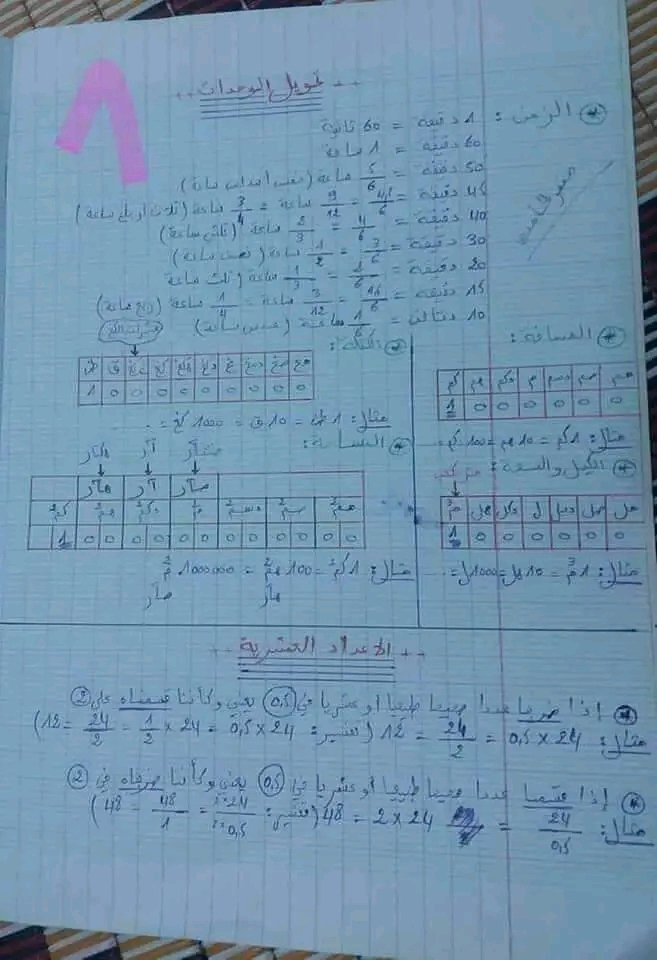 تحويل الوحدات
الزمن :
1 دقيقة = 60 ثانية
60 دقيقة = 1 ساعة
50 دقيقة = 5/6 ساعة (خمس أسداس ساعة)
45 دقيقة = 4,5/6 = 9/12 ساعة = 3/4 ساعة (ثلاث أرباع ساعة)
40 دقيقة = 4/6 = 2/3 ساعة (ثلثي ساعة)
30 دقيقة = 3/6 = 1/2 ساعة (نصف ساعة)
20 دقيقة = 2/6 = 1/3 ساعة (ثلث ساعة
15 دقيقة = 1,5/6 = 3/12 ساعة = 1/4 ساعة (ربع ساعة)
10 دقائق = 1/6 ساعة (سدس ساعة)
المسافة :
كم هم دكم م دسم سم مم
1 0 0 0 0 0 0
مثال: 1 كم = 10 هم = 100 دكم =
الكتلة :
ط ق كغ هكغ دكغ غ دسغ سغ مغ
1 0 0 0 0 0 0 0 0 0
مثال: 1 ط = 10 ق = 1000 كغ =
الكيل والسعة :
م3 هل دكل ل دسل سل مل
1 0 0 0 0 0 0
مثال: 1 م3 = 10 هل = 1000 ل =
المساحة :
هكتار آر
هآر آر صآر
كم2 هم2 دكم2 م2 دسم2 سم2 مم2
1 0 0 0 0 0 0 0 0 0 0 0 0
مثال: 1 كم2 = 100 هم2 = 1000000 م2
هآر صآر
الأعداد العشرية
إذا ضربنا عددا صحيحا طبيعيا أو عشريا في 0,5 يعني وكأننا قسمناه على 2
مثال: 24 × 0,5 = 24/2 = 12 (تفسير: 24 × 0,5 = 24 × 1/2 = 24/2 = 12)
إذا قسمنا عددا صحيحا طبيعيا أو عشريا في 0,5 يعني وكأننا ضربناه في 2
مثال: 24/0,5 = 24 × 2 = 48 (تفسير: 24×2/0,5×2 = 48/1 = 48)